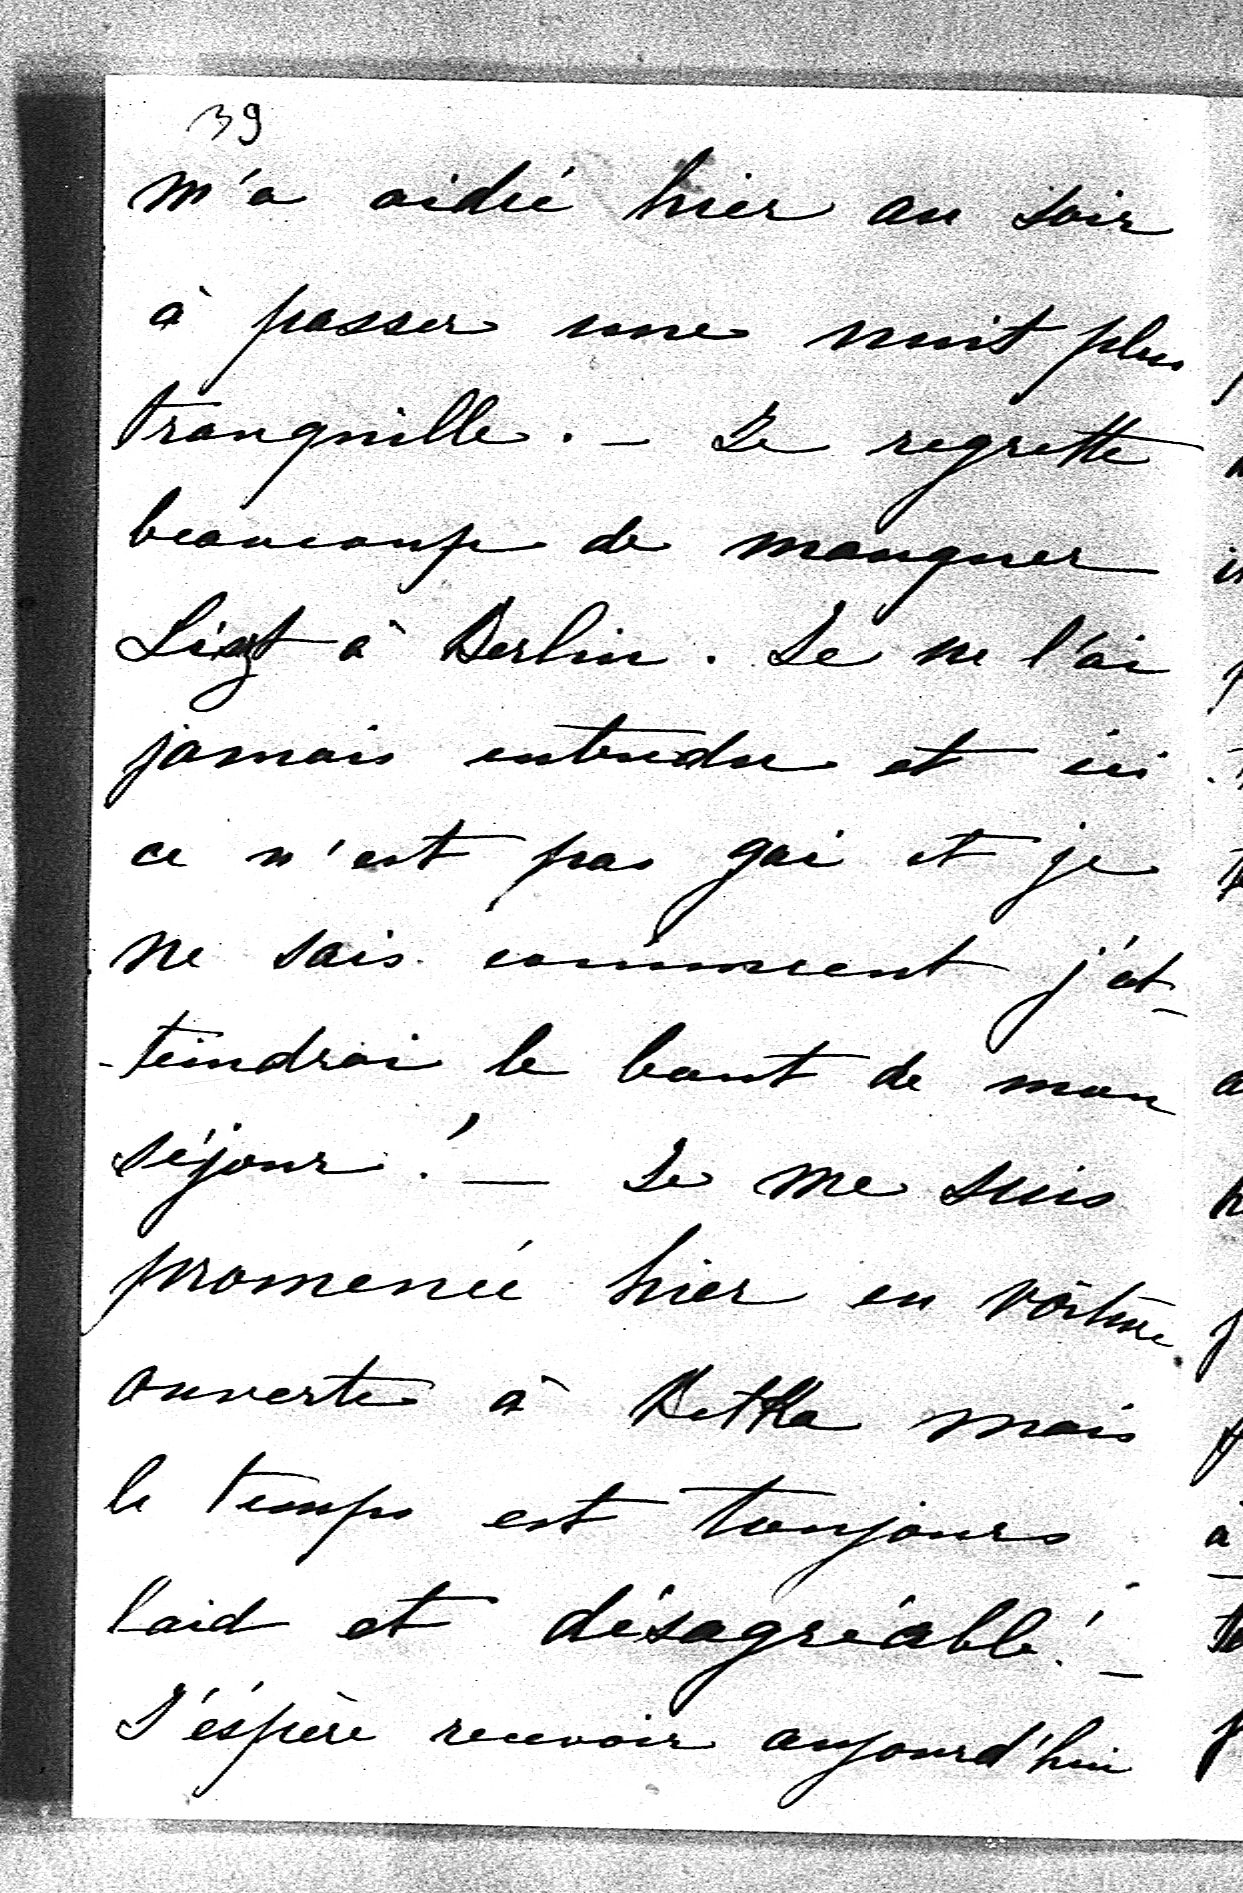 39
m'a aidé hier au soir
à passer une nuit plus
tranquille. – Je regrette
beaucoup de manquer
Liszt à Berlin. Je ne l'ai
jamais entendu et ici
ce n'est pas gai et je
ne sais comment j'at-
-teindrai le bout de mon
séjour! — Je me suis
promenée hier en voiture
ouverte à Betka mais
le temps est toujours
laid et désagréable! –
J'éspère recevoir aujourd'hui